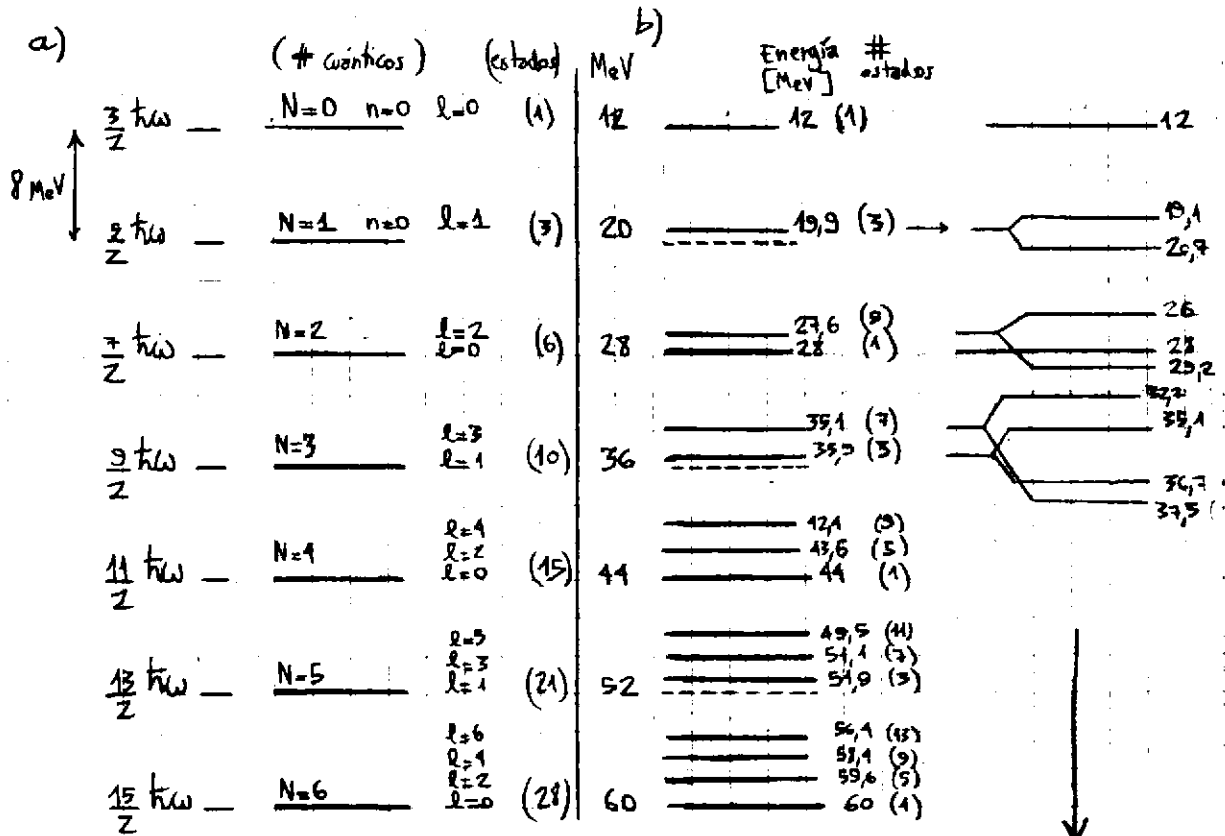 a)
b)
(# cuánticos) (estados) MeV Energía # estados
[MeV]
3/2 ħω — N=0 n=0 l=0 (1) 12 12 (1) 12
8 MeV
2/2 ħω — N=1 n=0 l=1 (3) 20 19,9 (3) → 19,1
20,7
7/2 ħω — N=2 l=2 l=0 (6) 28 27,6 28 (1) 26
28
29,2
9/2 ħω — N=3 l=3 l=1 (10) 36 35,1 (7) 35,9 (3) 35,1
36,7
37,5
11/2 ħω — N=4 l=4 l=2 l=0 (15) 44 42,4 (9) 43,6 (5) 44 (1)
13/2 ħω — N=5 l=5 l=3 l=1 (21) 52 49,5 (11) 51,1 (7) 51,9 (3)
15/2 ħω — N=6 l=6 l=4 l=2 l=0 (28) 60 56,4 (13) 58,4 (9) 59,6 (5) 60 (1)